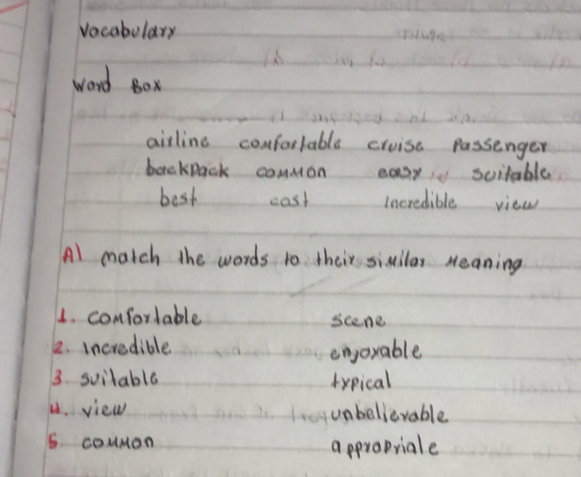 Vocabulary
Word Box
airline comfortable cruise Passenger
backpack common easy suitable
best cost Incredible view
A) match the words to their similar Meaning
1. comfortable scene
2. Incredible enjoyable
3. suitable typical
4. view unbelievable
5. common appropriate